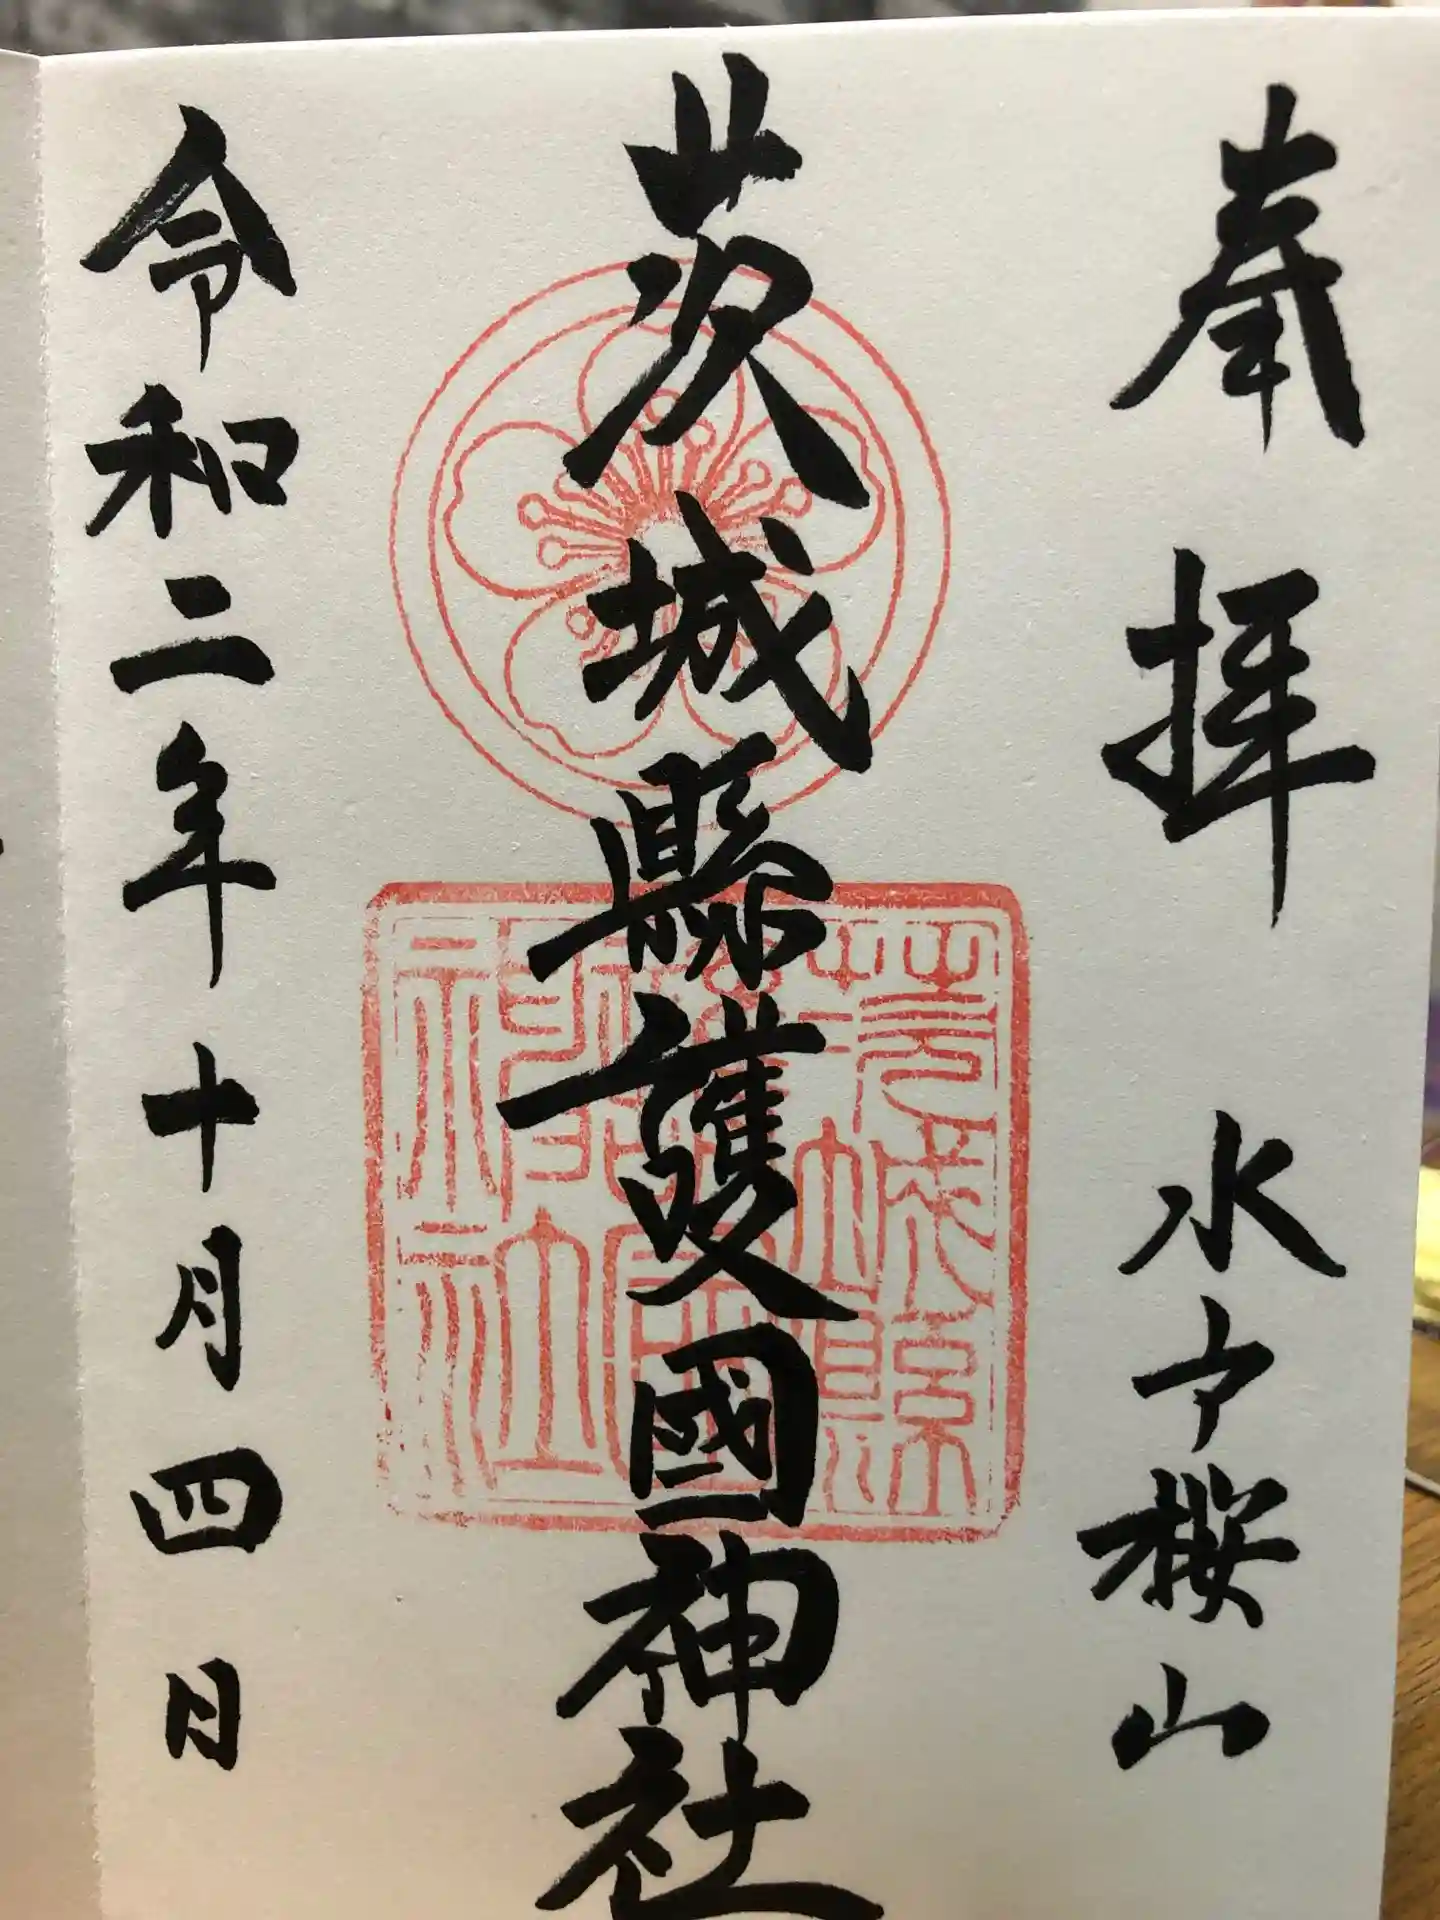 奉拝 水戸桜山
茨城縣護國神社
茨城縣
護国神
社
令和二年十月四日